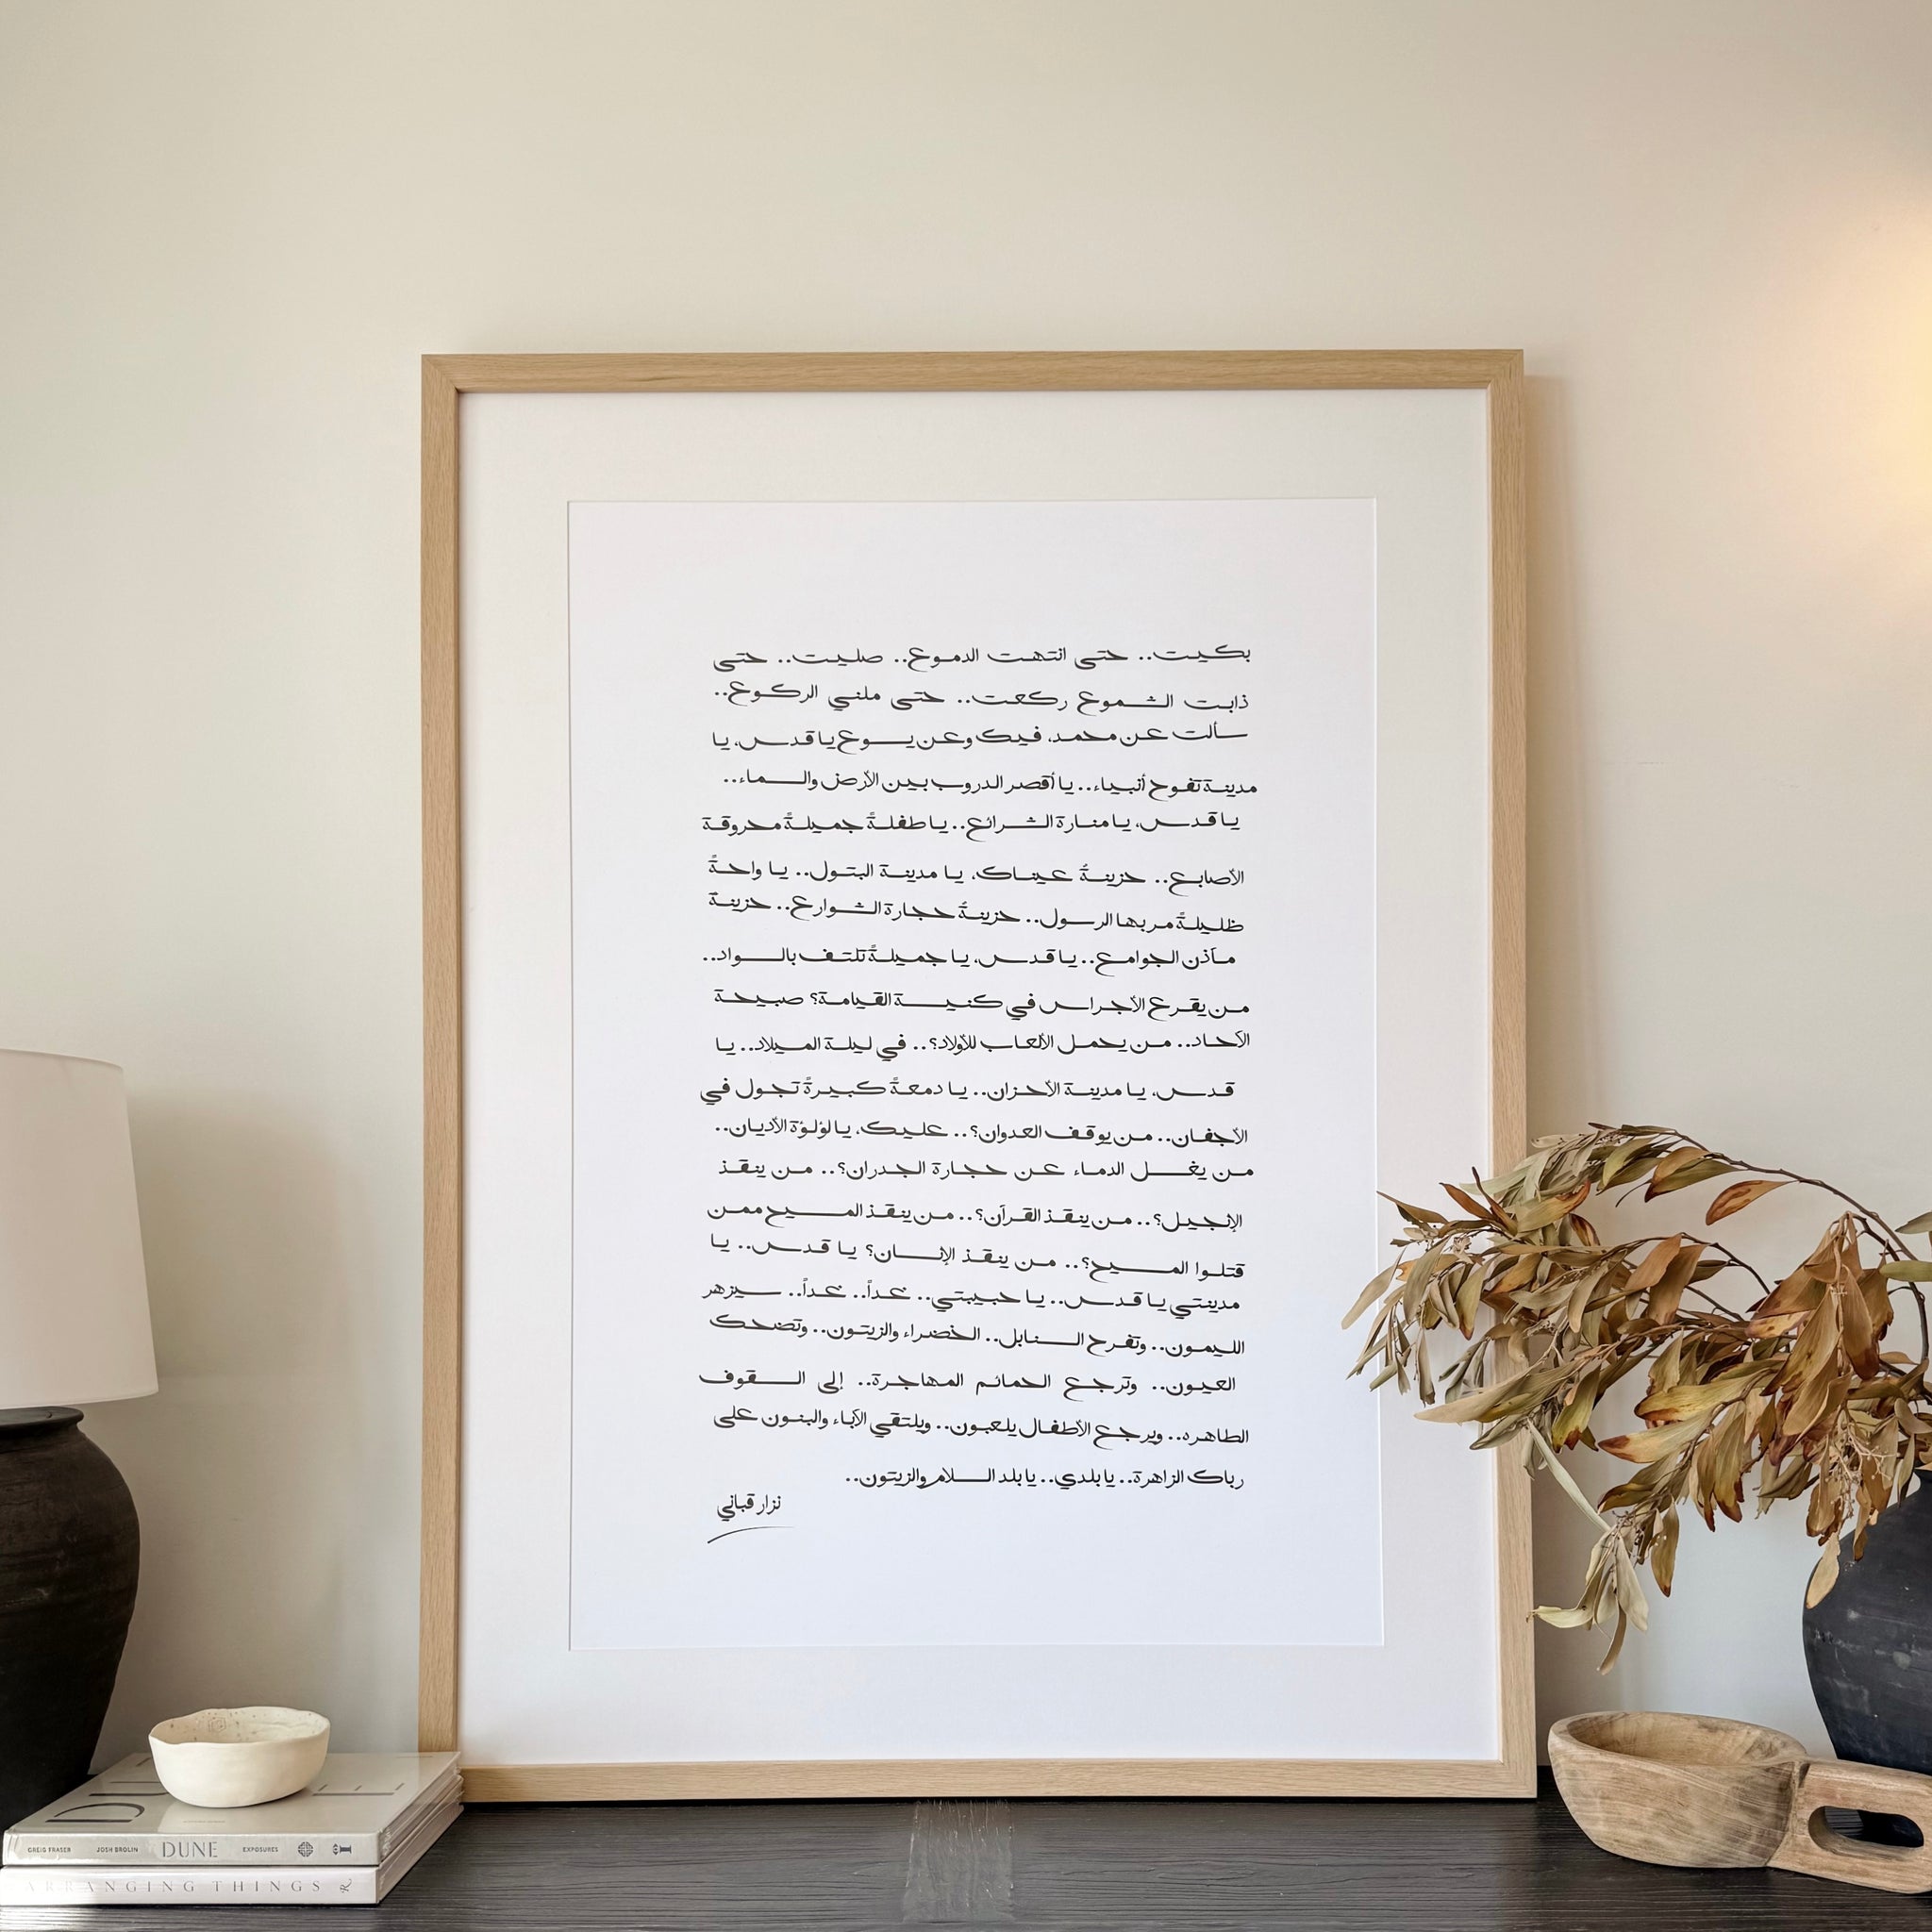 بكيت.. حتى انتهت الدموع.. صليت.. حتى
ذابت الشموع ركعت.. حتى ملني الركوع..
سألت عن محمد، فيك وعن يسوع يا قدس، يا
مدينة تفوح أنبياء.. يا أقصر الدروب بين الأرض والسماء..
يا قدس، يا منارة الشرائع.. يا طفلةً جميلةً محروقة
الأصابع.. حزينةٌ عيناك، يا مدينة البتول.. يا واحةً
ظليلةً مر بها الرسول.. حزينةٌ حجارة الشوارع.. حزينةٌ
مآذن الجوامع.. يا قدس، يا جميلةً تلتف بالسواد..
من يقرع الأجراس في كنيسة القيامة؟ صبيحة
الآحاد.. من يحمل الألعاب للأولاد؟.. في ليلة الميلاد.. يا
قدس، يا مدينة الأحزان.. يا دمعةً كبيرةً تجول في
الأجفان.. من يوقف العدوان؟.. عليك، يا لؤلؤة الأديان..
من يغسل الدماء عن حجارة الجدران؟.. من ينقذ
الإنجيل؟.. من ينقذ القرآن؟.. من ينقذ المسيح ممن
قتلوا المسيح؟.. من ينقذ الإنسان؟ يا قدس.. يا
مدينتي يا قدس.. يا حبيبتي.. غداً.. غداً.. سيزهر
الليمون.. وتفرح السنابل.. الخضراء والزيتون.. وتضحك
العيون.. وترجع الحمائم المهاجرة.. إلى السقوف
الطاهره.. ويرجع الأطفال يلعبون.. ويلتقي الآباء والبنون على
رباك الزاهرة.. يا بلدي.. يا بلد السلام والزيتون..
نزار قباني
GREIG FRASER JOSH BROLIN DUNE EXPOSURES
ARRANGING THINGS